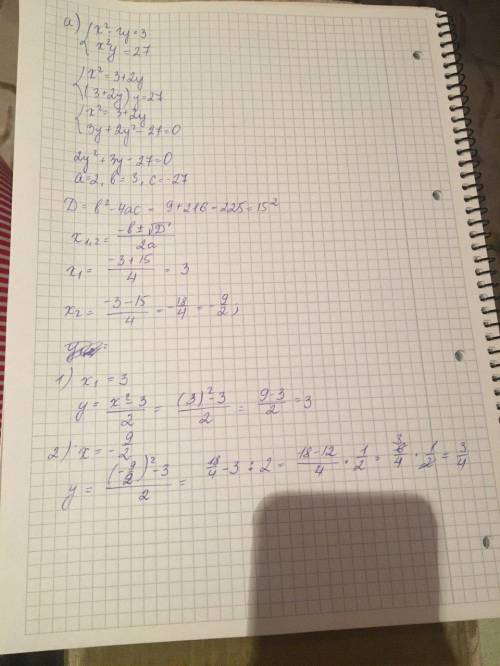 а) { x² - 2y = 3
x²y = 27
{ x² = 3+2y
(3+2y) y = 27
{ x² = 3+2y
3y + 2y² - 27 = 0
2y² + 3y - 27 = 0
a = 2, b = 3, c = -27
D = b² - 4ac = 9 + 216 = 225 = 15²
x₁,₂ = (-b ± √D) / 2a
x₁ = (-3 + 15) / 4 = 3
x₂ = (-3 - 15) / 4 = -18/4 = -9/2;
1) x₁ = 3
y = (x² - 3) / 2 = ((3)² - 3) / 2 = (9 - 3) / 2 = 3
2) x = -9/2
y = ((-9/2)² - 3) / 2 = 18/4 - 3 : 2 = (18 - 12) / 4 · 1/2 = 6/4 · 1/2 = 3/4